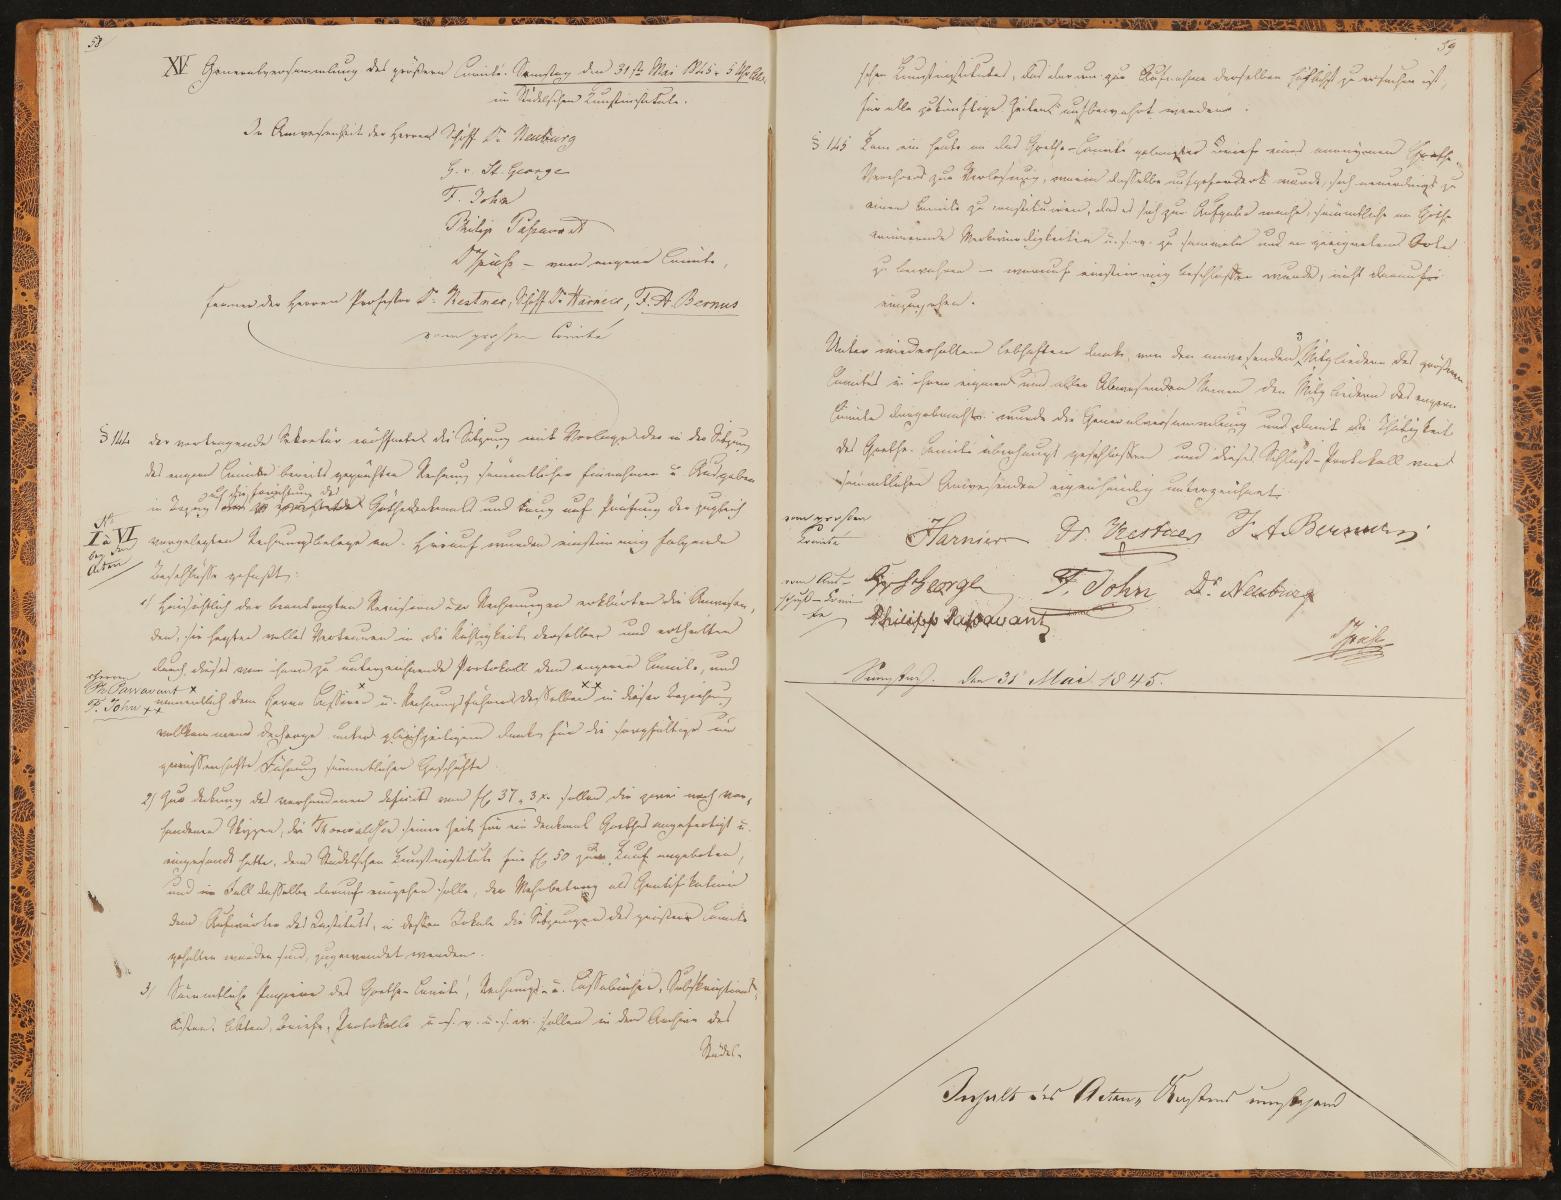 58
XV Generalversammlung des größern Comité. Samstag den 31ten Mai 1845. 5 Uhr
im Städelschen Kunstinstitute.
In Anwesenheit der Herren Schöff Dr. Neuburg
G. v. St. George
F. John
Philip Passavant
Dr Spieß – vom engern Comité,
ferner der Herren Professor Dr. Kestner, Schöff Dr Harnier, F. A. Bernus
vom großen Comité
§ 144 der vortragende Sekretär eröffnete die Sitzung mit Vorlage der in der Sitzung
des engern Comités bereits geprüften Rechnung sämmtlicher Einnahmen u Ausgaben
auf die Errichtung des
in Bezug Göthedenkmals und trug auf Prüfung der zugleich
No I à VI bey den Acten
vorgelegten Rechnungsbelege an. Hierauf wurden einstimmig folgende
Beschlüsse gefaßt:
1) Hinsichtlich der beantragten Revision der Rechnungen erklärten die Anwesen-
den, sie hegten volles Vertrauen in die Richtigkeit derselben und ertheilten
durch dieses von ihnen zu unterzeichnende Protokoll dem engeren Comité, und
Herrn Ph. Passavant x
F. John xx
namentlich dem Herrn Cassirer x u. Rechnungsführer desselben xx in dieser Beziehung
vollkommene decharge unter gleichzeitigem Dank für die sorgfältige und
gewissenhafte Führung sämmtlicher Geschäfte.
2) Zur Deckung des vorhandenen deficits von fl 37. 3 x. sollen die zwei noch vor-
handenen Skizzen, die Thorwaldsen seiner Zeit für ein Denkmal Goethes angefertigt u.
eingesandt hatte, dem Städelschen Kunstinstitute für fl 50 zum Kauf angeboten,
und im Fall dasselbe darauf eingehen solle, der Mehrbetrag als Gratifikation
dem Aufwärter des Instituts, in dessen Lokale die Sitzungen des größern Comité
gehalten worden sind, zugewendet werden.
3) Sämmtliche Papiere des Goethe-Comité, Rechnungs- u. Cassabücher, Subskriptions-
listen, Akten, Briefe, Protokolle u. s. w. u. s. w. sollen in dem Archive des
Städel-
59
schen Kunstinstitutes, das darum zur Aufnahme derselben höflichst zu ersuchen ist,
für alle zukünftige Zeiten aufbewahrt werden.
§ 145 Kam ein heute an das Goethe-Comité gelangter Brief eines anonymen Goethe-
Verehrers zur Verlesung, worin dasselbe aufgefordert wurde, sich neuerdings zu
einem Comité zu constituiren, das es sich zur Aufgabe mache, sämmtliche an Göthe
erinnernde Merkwürdigkeiten u. s. w. zu sammeln und an geeignetem Orte
zu bewahren – worauf einstimmig beschlossen wurde, nicht darauf
einzugehen.
Unter wiederholtem lebhaften Dank, von den anwesenden 3 Mitgliedern des größern
Comités in ihrem eignen und aller Abwesenden Namen den Mitgliedern des engern
Comité dargebracht, wurde die Generalversammlung und damit die Thätigkeit
des Goethe-Comité überhaupt geschlossen und dieses Schluß-Protokoll von
sämmtlichen Anwesenden eigenhändig unterzeichnet.
vom großen Comité
Harnier Dr. Kestner F. A. Bernus
vom Aus-
schuß-Comi-
te
Gg St George F. John Dr. Neuburg
Philipp Passavant
Dr Spieß
Samstag. den 31 Mai 1845.
Inhalt des Acten-Kastens umstehend